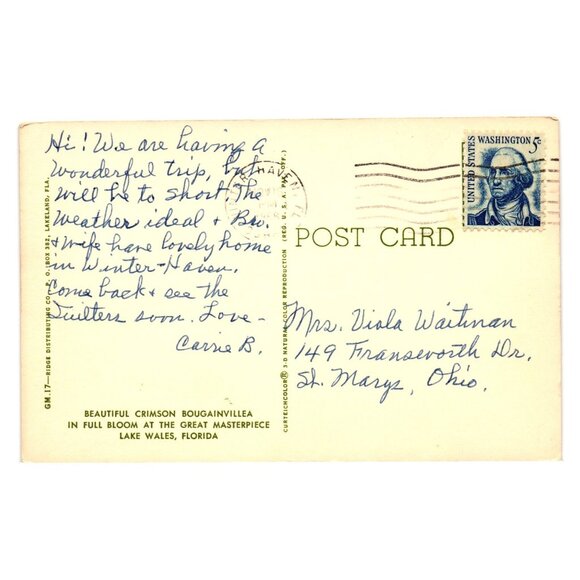 Hi! We are having a
wonderful trip, but
will be to short. The
Weather ideal & Bro.
& wife have lovely home
in Winter-Haven.
Come back & see the
Quilters soon. Love-
Carrie B.
BEAUTIFUL CRIMSON BOUGAINVILLEA
IN FULL BLOOM AT THE GREAT MASTERPIECE
LAKE WALES, FLORIDA
GM.17—RIDGE DISTRIBUTING CO.—P. O. BOX 382, LAKELAND, FLA.
CURTEICHCOLOR® 3-D NATURAL COLOR REPRODUCTION (REG. U. S. A. PAT. OFF.)
HAVEN
UNITED STATES
WASHINGTON 5c
POST CARD
Mrs. Viola Waitman
149 Franseworth Dr.
St. Marys, Ohio.